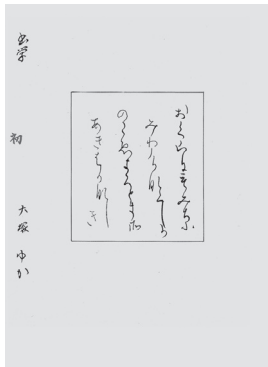 おくやまにもみちふ
みわけなくしか
のこゑきくときそ
あきはかなしき
初 大塚 ゆか